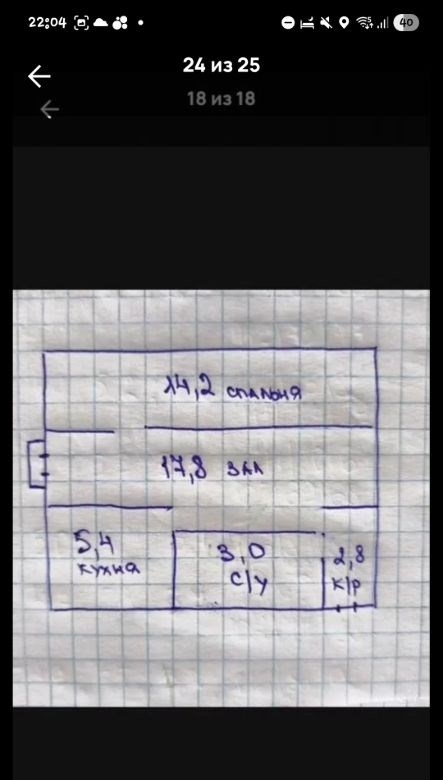 22:04
40
24 из 25
18 из 18
14,2 спальня
17,8 зал
5,4
кухня
3,0
с/у
2,8
к/р